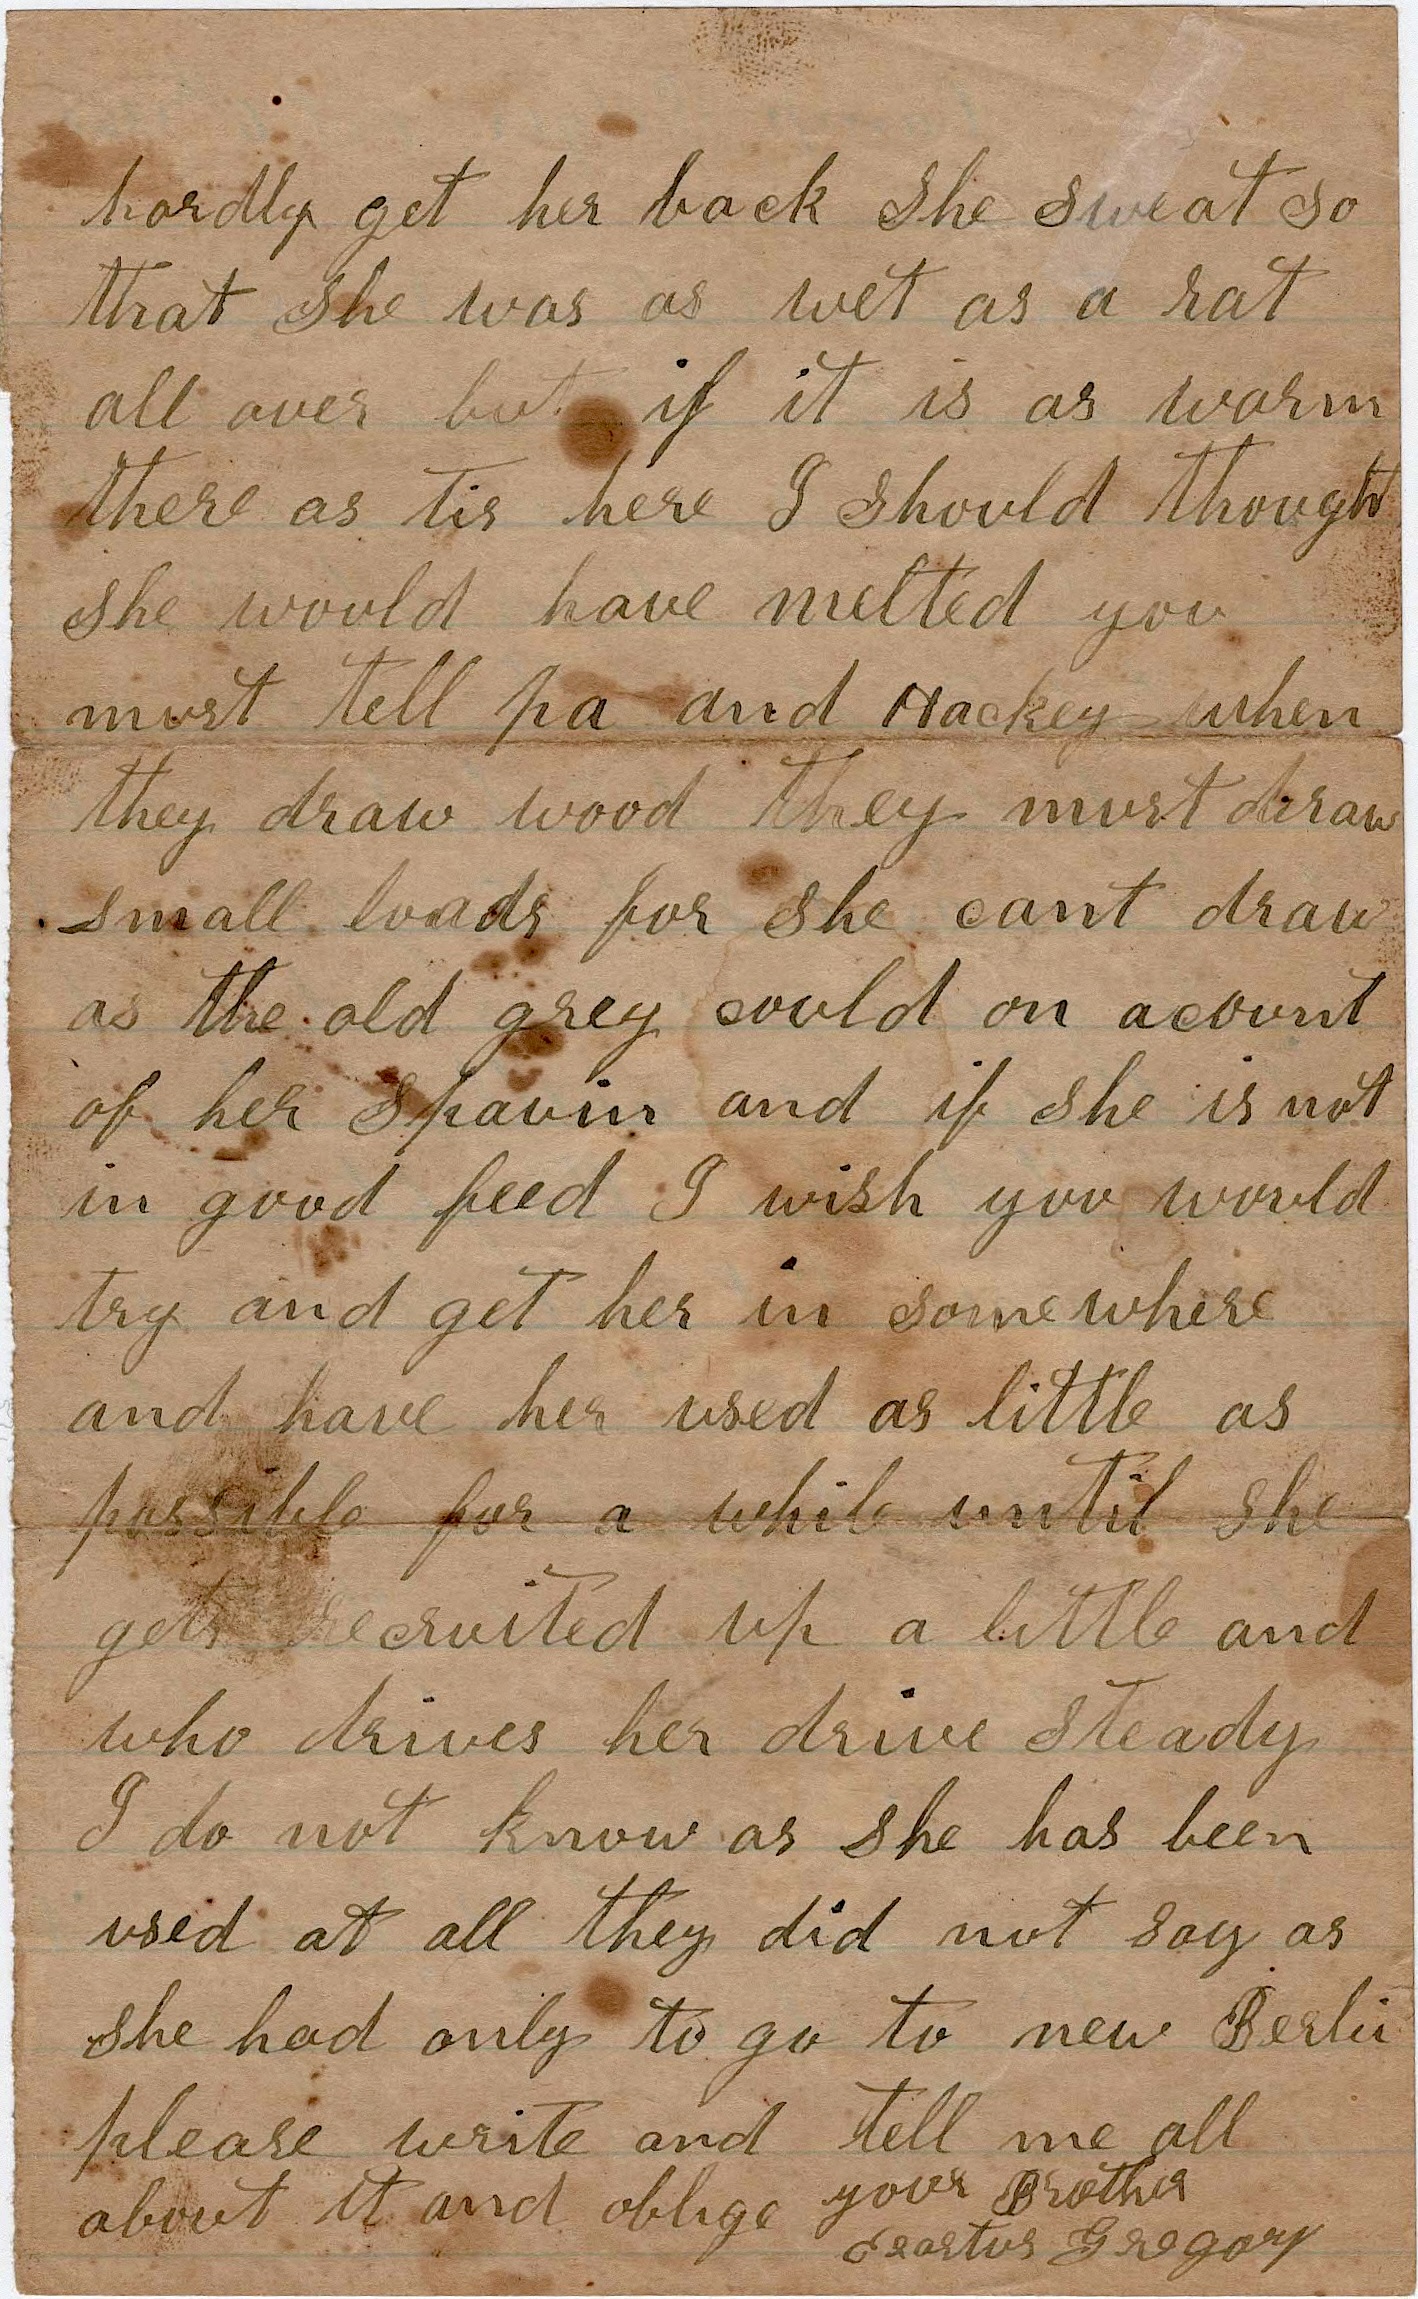 hardly get her back she sweat so
that she was as wet as a rat
all over but if it is as warm
there as tis here I should thought
she would have melted you
must tell pa and Hackey when
they draw wood they must draw
small loads for she cant draw
as the old grey could on acount
of her spavin and if she is not
in good feed I wish you would
try and get her in somewhere
and have her used as little as
possible for a while until she
gets recruited up a little and
who drives her drive steady
I do not know as she has been
used at all they did not say as
she had only to go to new Berlin
please write and tell me all
about it and oblige your Brother
Erastus Gregory